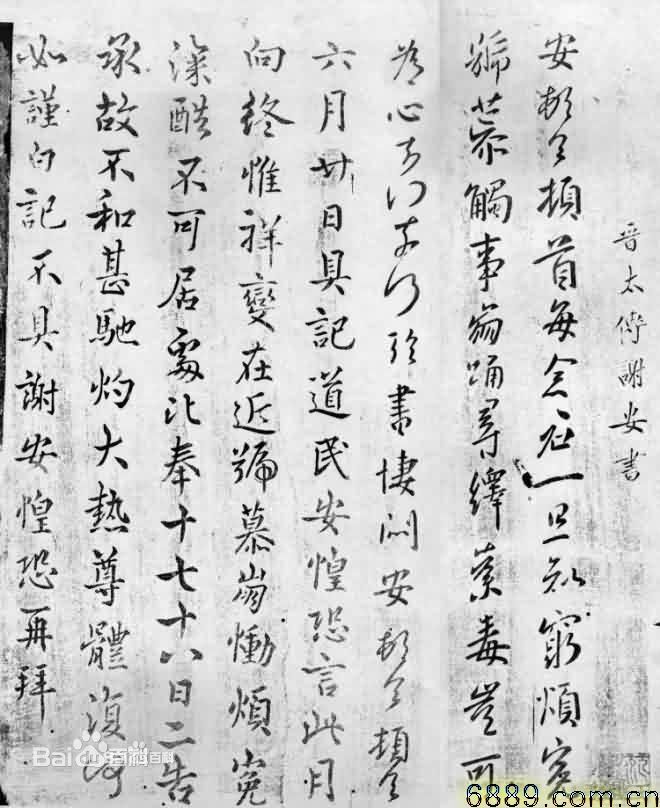 晉太傅謝安書
安頓首頓首每念君一旦知窮煩冤
號慕觸事崩踊尋繹荼毒豈可
為心奈何奈何臨書悽悶安頓首頓首
六月廿日具記道民安惶恐言此月
向終惟祥變在近號慕崩慟煩冤
深酷不可居處比奉十七十八日二告
承故不和甚馳灼大熱尊體復何
如謹白記不具謝安惶恐再拜
Bai百科百度百科
6889.com.cn